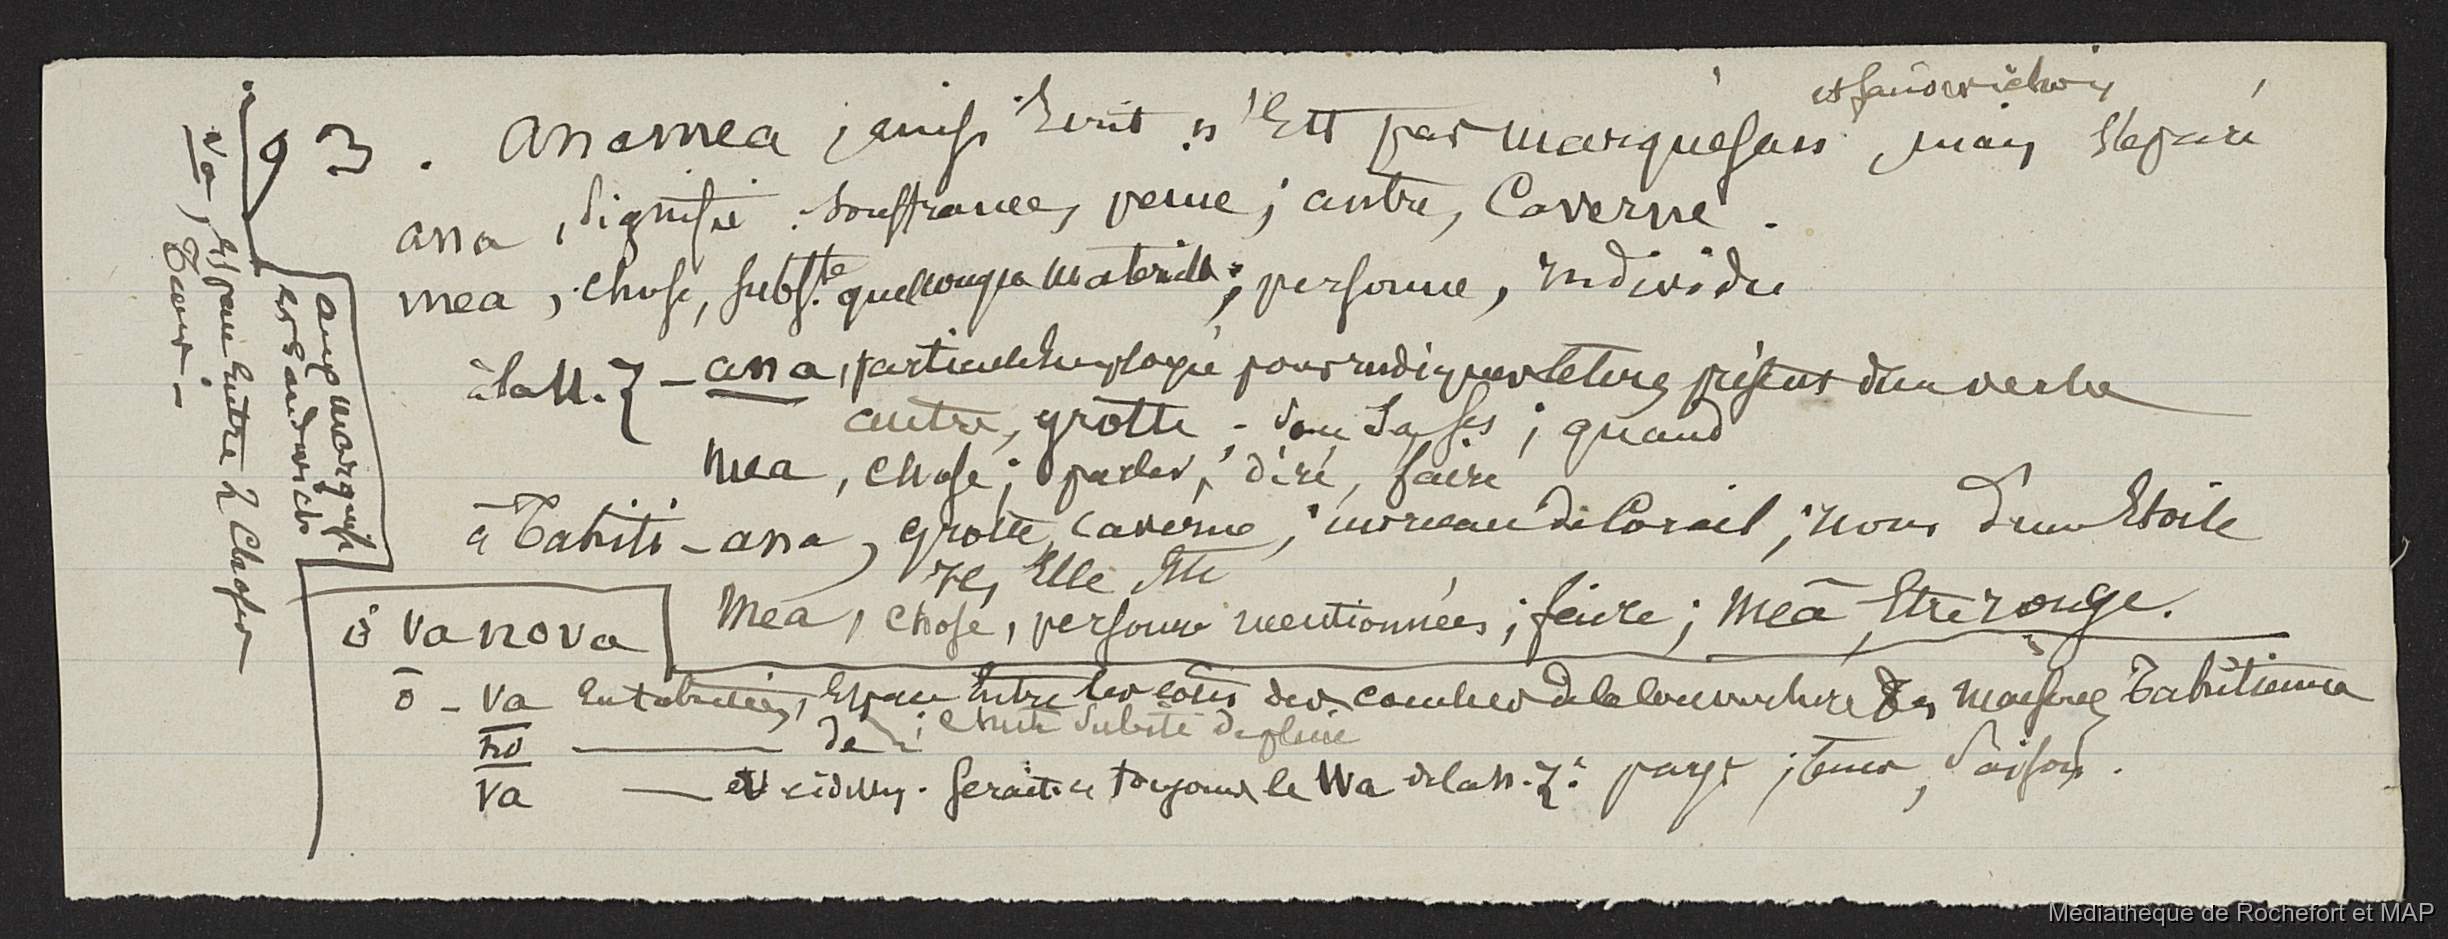 et sandwichois
93. Anamea ainsi Ecrit n'Est pas marquésan mais séparé
ana, signifie souffrance, peine; antre, Caverne.
mea, chose, subst.ce quelconque materielle; personne, individu
à la N. Z - ana, particule Employée pour indiquer le temps présent d'un verbe
antre, grotte - ; quand
mea, chose; parler, dire, faire
à Tahiti - ana, grotte, caverne; morceau de Corail; nom d'une Etoile
Il, Elle Etc
mea, chose, personne mentionnées; faire; meā, Etre rouge.
is Vanova
ō - Va En tahitien, Espace Entre les des de la couverture des maisons Tahitiennes
no de ; chute subite de pluie
Va — et idem. Serait-ce toujours le Wa de la N. Z: pays; temps, saison.
aux marquises
et Sandwich
va, Espace Entre 2 Choses
Temps -
Mediatheque de Rochefort et MAP